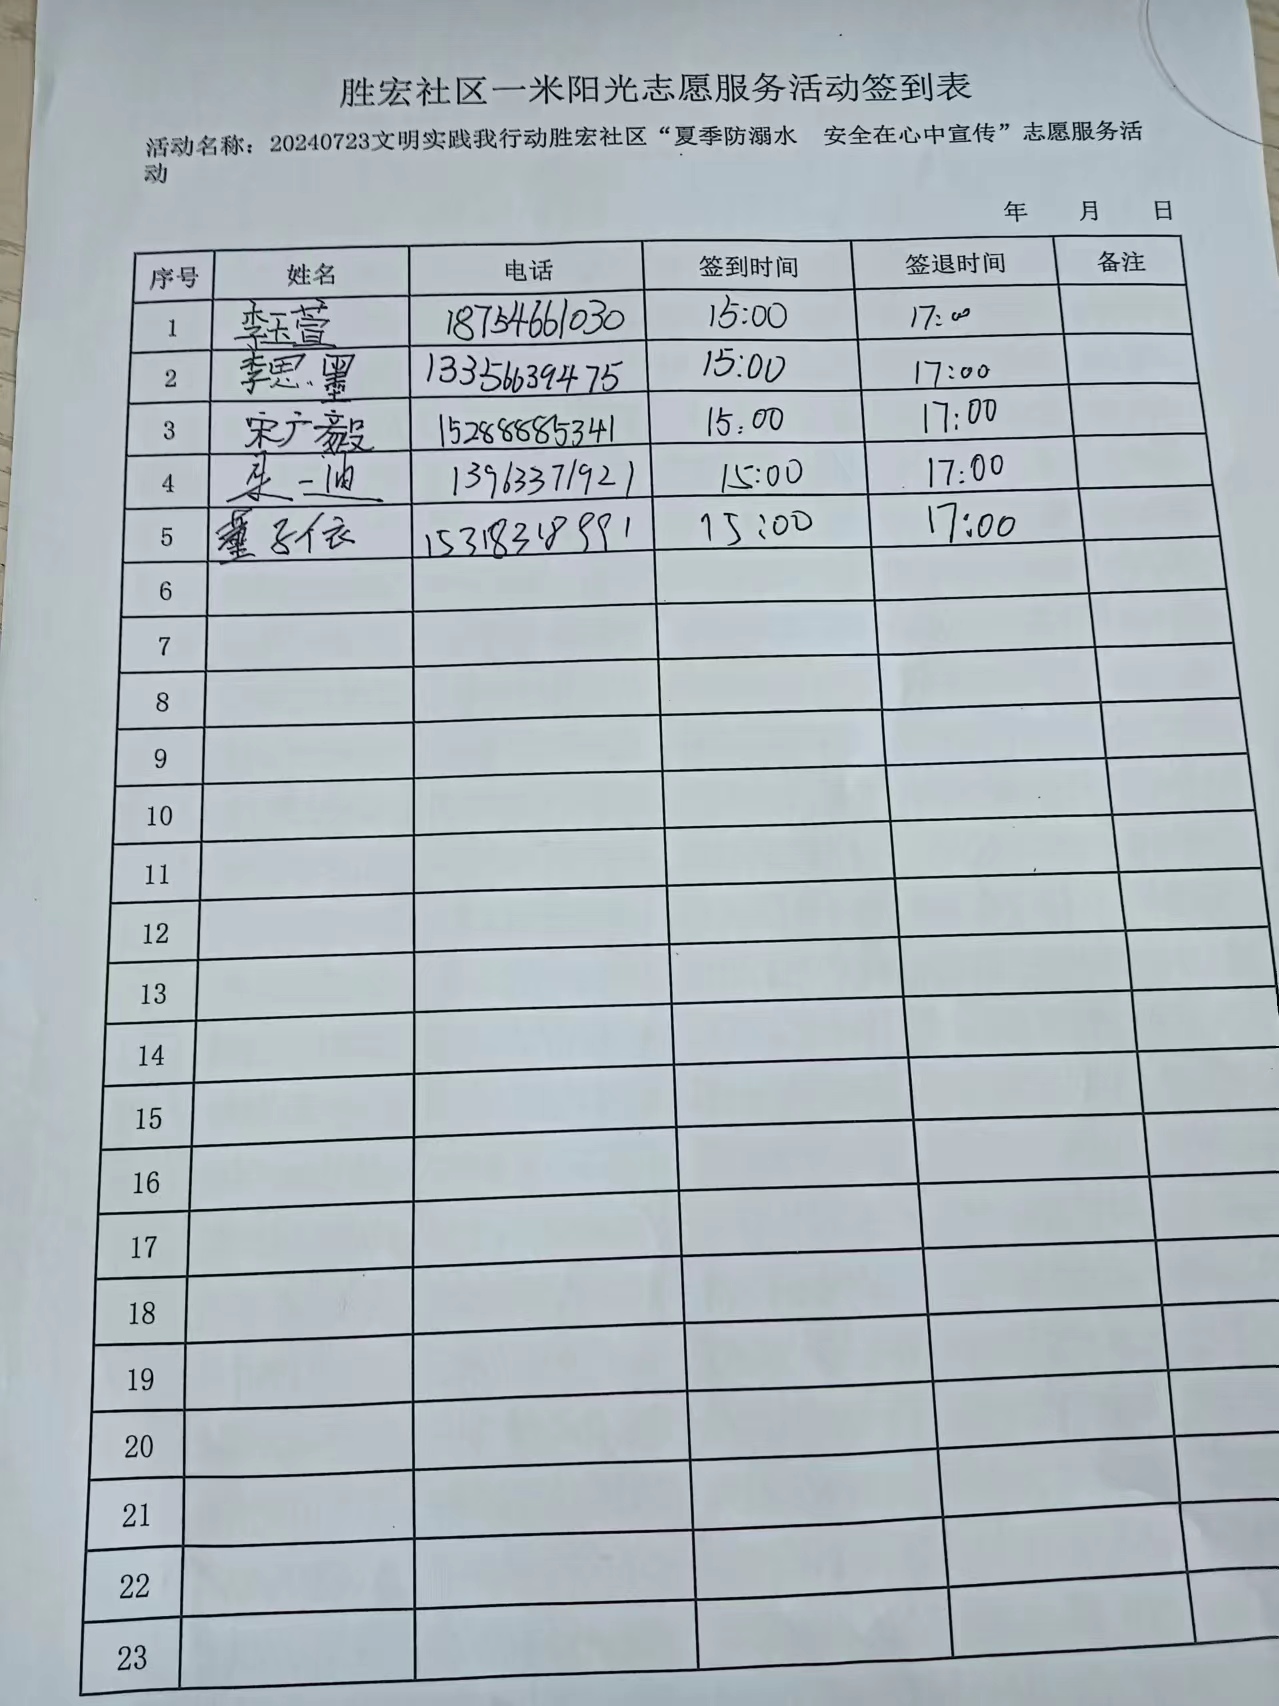 胜宏社区一米阳光志愿服务活动签到表
活动名称：20240723文明实践我行动胜宏社区“夏季防溺水 安全在心中宣传”志愿服务活
动
年 月 日
序号 姓名 电话 签到时间 签退时间 备注
1 李玉萱 18754661030 15:00 17:00
2 李思墨 13356639475 15:00 17:00
3 宋广毅 15288885341 15:00 17:00
4 13963371921 15:00 17:00
5 董子依 15318318991 15:00 17:00
6
7
8
9
10
11
12
13
14
15
16
17
18
19
20
21
22
23